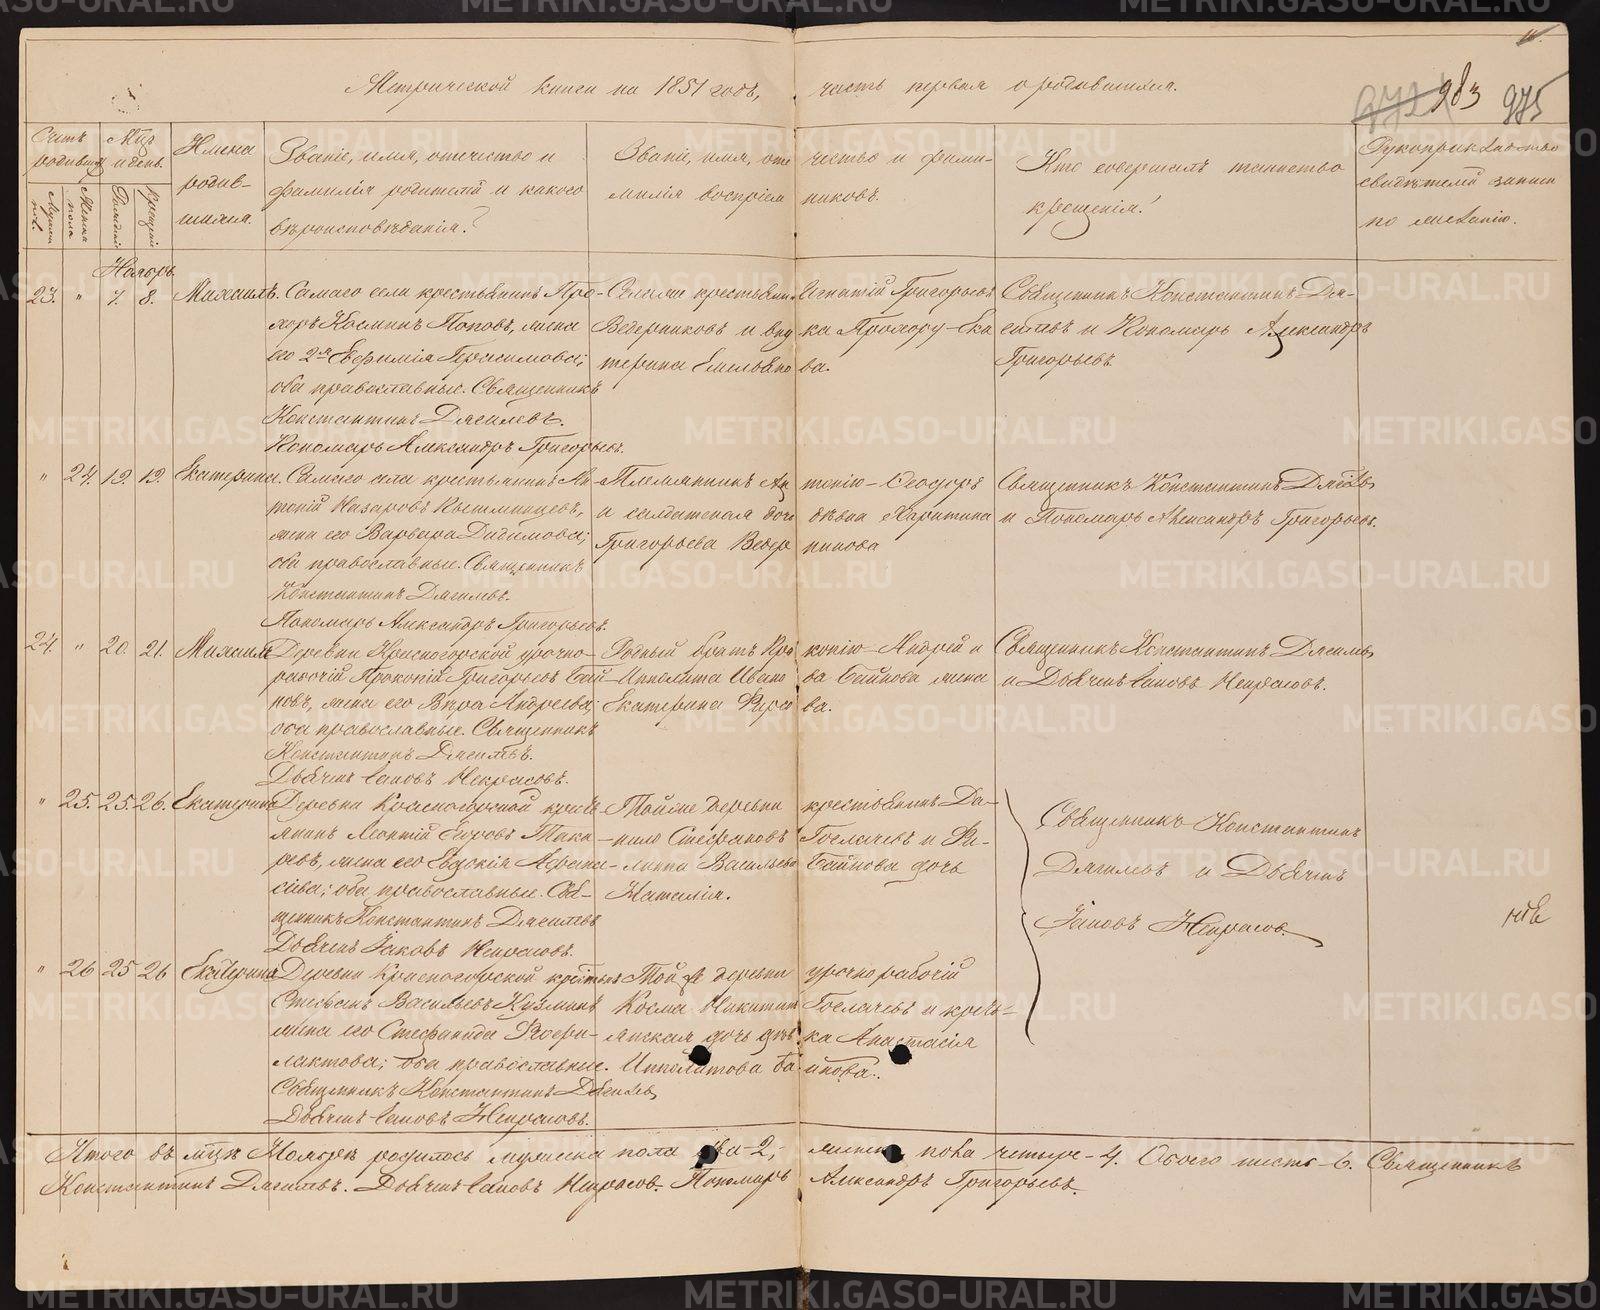 Метрической книги на 1851 годъ, часть первая о родившихся.
983 975
Счетъ родившихся
Мѣц и день.
Имена родив-
шихся.
Званіе, имя, отечество и
фамилія родителей и какого
вѣроисповѣданія?
Званіе, имя, оте чество и фами-
милія воспріем никовъ.
Кто совершалъ таинство
крещенія?
Рукоприкладство
свидѣтелей записи
по желанію.
Ноябрь.
23. " 7. 8. Михаилъ.
Самаго села крестьянинъ Про-
хоръ Косминъ Поповъ, жена
его 2я Евфимія Герасимова;
оба православные. Священникъ
Константинъ Дягилевъ.
Пономарь Александръ Григорьевъ.
Сельскіе крестьяни Игнатій Григорьевъ
Ведерниковъ и вну ка Прохору Ека
терина Емельяно ва.
Священникъ Константинъ Дя-
гилевъ и Пономарь Александръ
Григорьевъ.
" 24. 12. 13. Екатерина.
Самаго села крестьянинъ Ан
тоній Назаровъ
жена его Варвара Дидимова;
оба православные. Священникъ
Константинъ Дягилевъ.
Пономарь Александръ Григорьевъ.
Племянникъ Ан тонію Ѳеодоръ
и солдатская доче Харитина
Григорьева Ведер никова
Священникъ Константинъ Дягилевъ
и Пономарь Александръ Григорьевъ.
24. " 20. 21. Михаилъ
Деревни Красногорской урочно-
рабочій Прокопій Григорьевъ Бай
новъ, жена его Вѣра Андреева;
оба православные. Священникъ
Константинъ Дягилевъ.
Дьячекъ Іаковъ Некрасовъ.
Родный братъ Про копію Андрей и
Ипполита Ивано ва Байнова жена
Екатерина Фирсо ва.
Священникъ Константинъ Дягилевъ
и Дьячекъ Іаковъ Некрасовъ.
" 25. 25. 26. Екатерина
Деревни Красногорской кресть
янинъ Леонтій Егоровъ Тока
ревъ, жена его Евдокія Афана-
сіева; оба православные. Свя-
щенникъ Константинъ Дягилевъ
Дьячекъ Іаковъ Некрасовъ.
Тойже деревни крестьянинъ Да-
нило Стефановъ Госпачевъ и Фи-
липпа Васильева Байнова дочь
Наталія.
Священникъ Константинъ
Дягилевъ и Дьячекъ
Іаковъ Некрасовъ.
" 26 25 26 Екатерина
Деревни Красногорской крестьян
Стефанъ Васильевъ Кузминъ
жена его Стефанида Ѳеофи-
лактова; оба православные.
Священникъ Константинъ Дягилевъ
Дьячекъ Іаковъ Некрасовъ.
Той же деревни урочнорабочій
Косма Никитинъ Госпачевъ и кресть-
янская дочь дѣв ка Анастасія
Ипполитова Ба инова.
Итого въ мцѣ Ноябрѣ родилось мужеска пола два-2, женска пола четыре-4. Обоего шесть-6. Священникъ
Константинъ Дягилевъ. Дьячекъ Іаковъ Некрасовъ. Пономарь Александръ Григорьевъ.